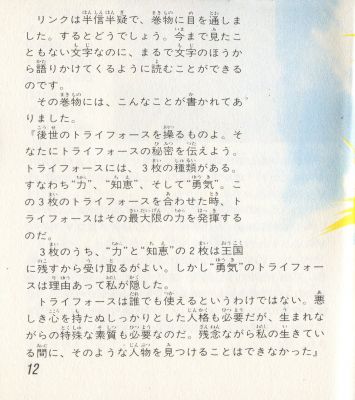 リンクは半信半疑で、巻物に目を通しま
した。するとどうでしょう。今まで見たこ
ともない文字なのに、まるで文字のほうか
ら語りかけてくるように読むことができる
のです。
その巻物には、こんなことが書かれてあ
りました。
『後世のトライフォースを操るものよ。そ
なたにトライフォースの秘密を伝えよう。
トライフォースには、3枚の種類がある。
すなわち“力”、“知恵”、そして“勇気”。こ
の3枚のトライフォースを合わせた時、ト
ライフォースはその最大限の力を発揮する
のだ。
3枚のうち、“力”と“知恵”の2枚は王国
に残すから受け取るがよい。しかし“勇気”のトライフォー
スは理由あって私が隠した。
トライフォースは誰でも使えるというわけではない。悪
しき心を持たぬしっかりとした人格も必要だが、生まれな
がらの特殊な素質も必要なのだ。残念ながら私の生きてい
る間に、そのような人物を見つけることはできなかった』
12